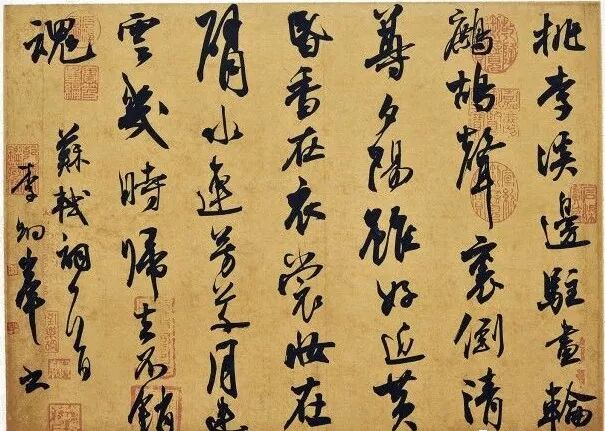 桃李溪邊駐畫輪
鷓鴣聲裏倒清
尊夕陽雖好近黃
昏香在衣裳妝在
臂水連芳草月連
雲幾時歸去不銷
魂
蘇軾詞一首
李峯书